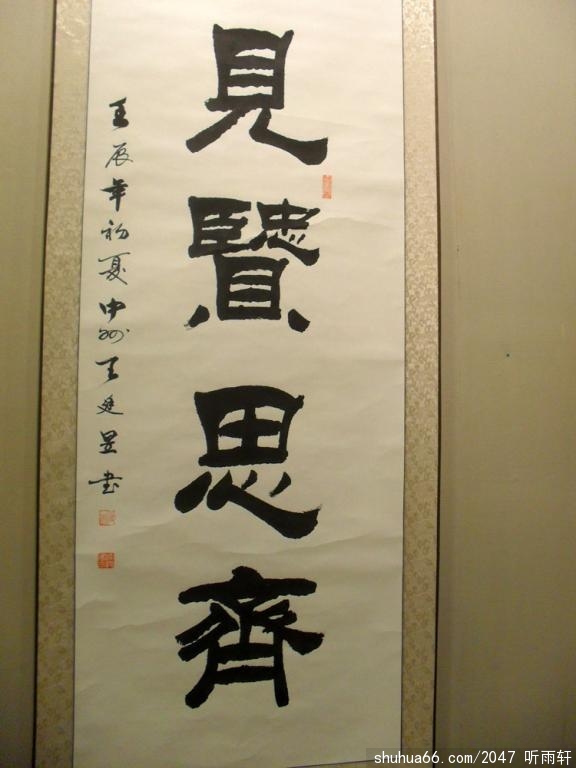 見賢思齊
壬辰年初夏中州王廷昱書
shuhua66.com/2047 听雨轩